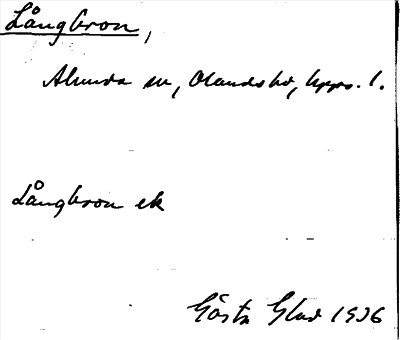 Långbron,
Alunda sn, Olandshd, Upps. l.
Långbron ek
Gösta Glad 1936